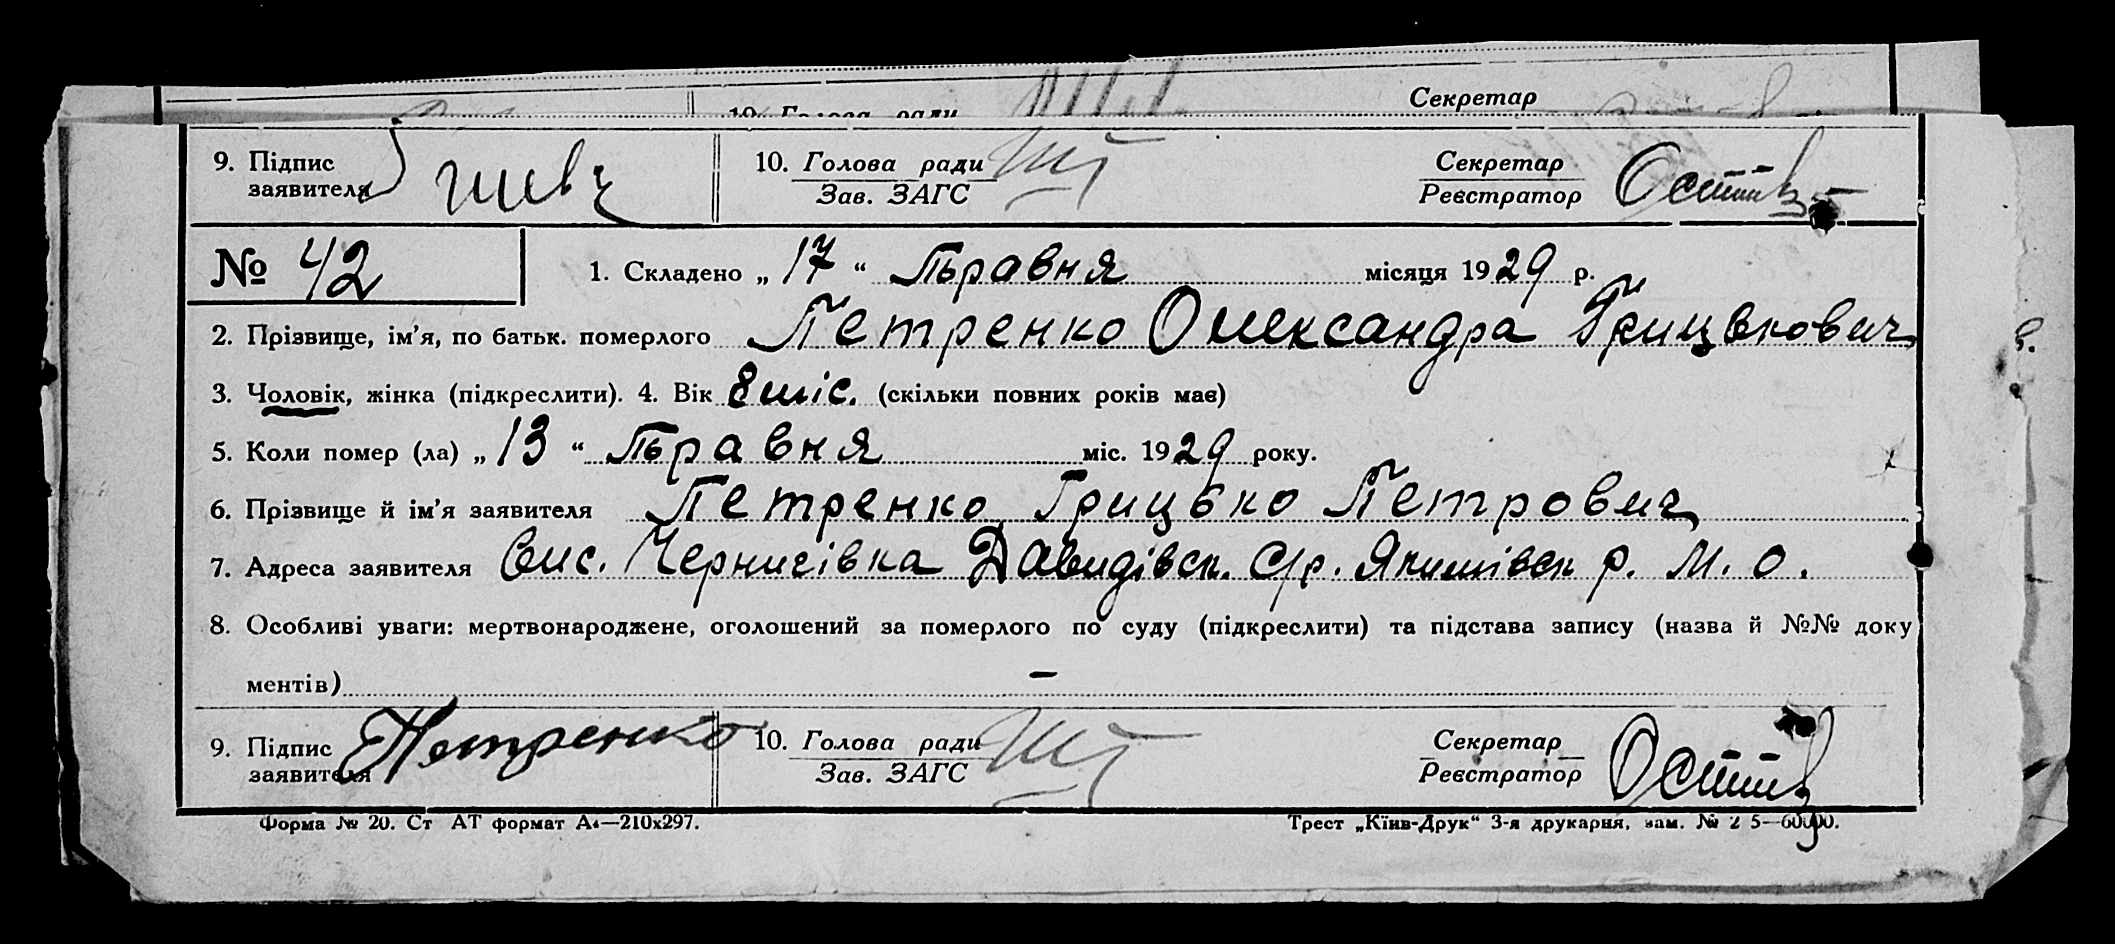 Секретар
10. Голова ради
9. Підпис заявителя 10. Голова ради Зав. ЗАГС Секретар Реєстратор
№ 42 1. Складено „17“ Травня місяця 1929 р.
2. Прізвище, ім’я, по батьк. померлого Петренко Олександра Грицькович
3. Чоловік, жінка (підкреслити). 4. Вік 8 міс. (скільки повних років має)
5. Коли помер (ла) „13“ Травня міс. 1929 року.
6. Прізвище й ім’я заявителя Петренко Грицько Петрович
7. Адреса заявителя Вис. Чернигівка Давидівск. С/р. Якимівск р. М. О.
8. Особливі уваги: мертвонароджене, оголошений за померлого по суду (підкреслити) та підстава запису (назва й №№ доку
ментів) —
9. Підпис заявителя Петренко 10. Голова ради Зав. ЗАГС Секретар Реєстратор
Форма № 20. Ст АТ формат А4—210х297. Трест „Київ-Друк“ 3-я друкарня, зам. №